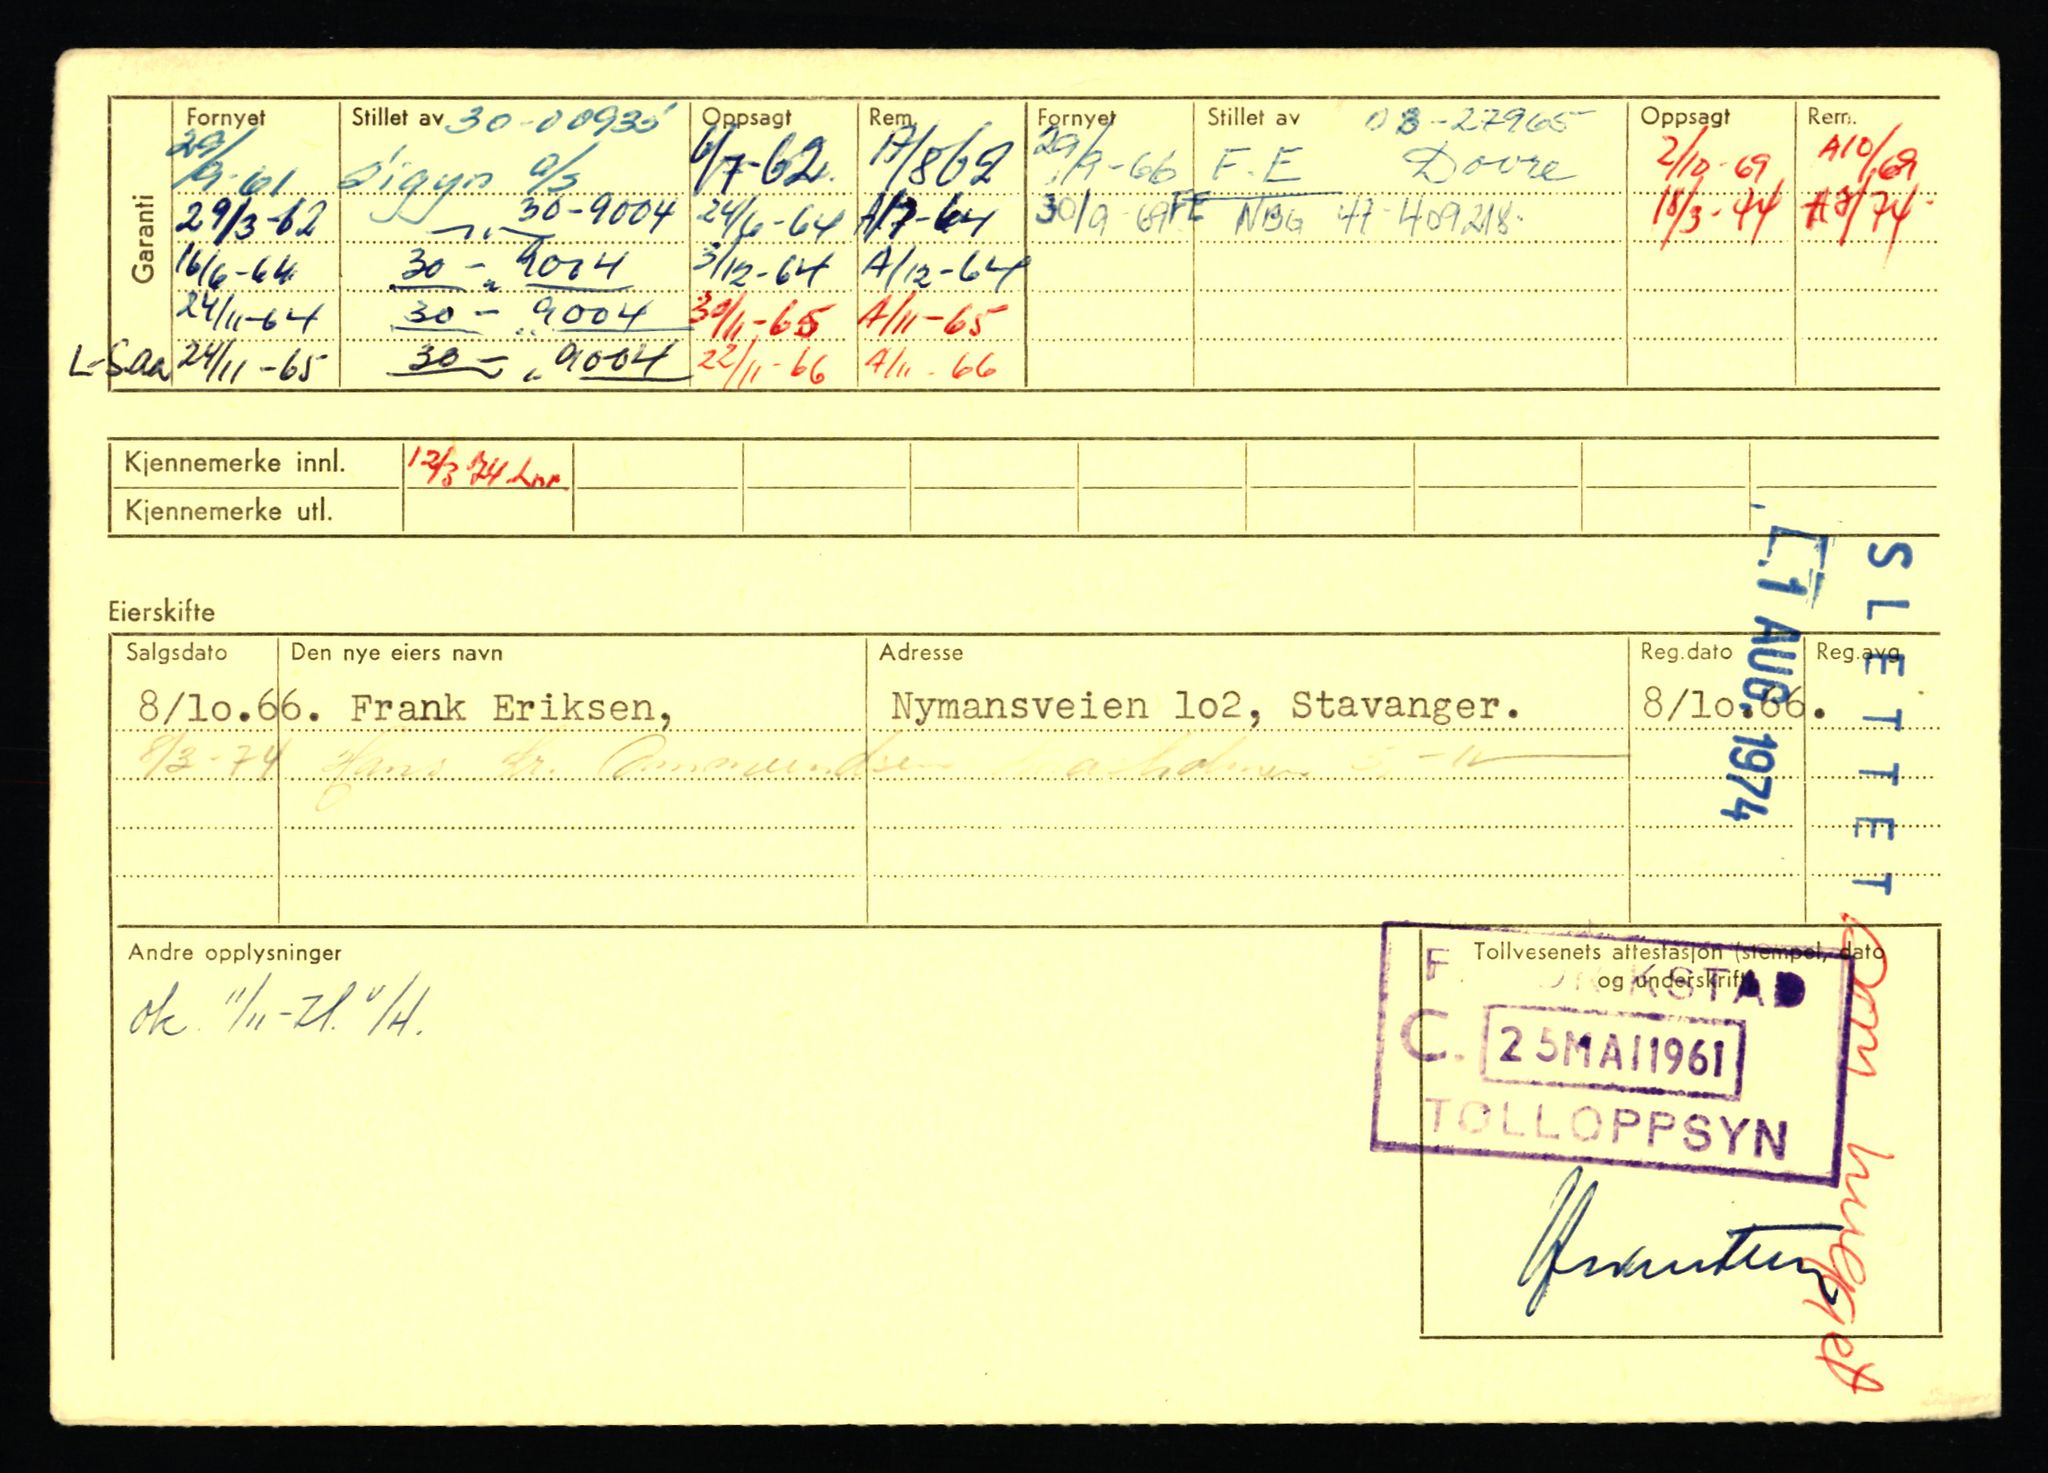 Garanti
Fornyet Stillet av 30-00935 Oppsagt Rem. Fornyet Stillet av 03-27965 Oppsagt Rem.
29/9-61 Sigyn a/s 6/7-62. A/8 62 29/9-66 F.E Dovre 2/10-69 A10/69
29/3-62 —"— 30-9004 24/6-64 A/7-64 30/9-69 FE NBG 47-409218 18/3-74 A7/74
16/6-64 30 - " 9004 3/12-64 A/12-64
24/11-64 30 - " 9004 30/11-65 A/11-65
L-Saa 24/11-65 30 - " 9004 22/11-66 A/11-66
Kjennemerke innl. 12/3 74
Kjennemerke utl.
Eierskifte
Salgsdato Den nye eiers navn Adresse Reg.dato Reg.avg
8/lo.66. Frank Eriksen, Nymansveien lo2, Stavanger. 8/lo.66.
8/3-74 Hans Kr. Ommundsen
SLETTET
1 AUG. 1974
Som hugget
Andre opplysninger
ok "/11-71.
Tollvesenets attestasjon (stempel, dato
og underskrift)
C. 25 MAI 1961
TOLLOPPSYN